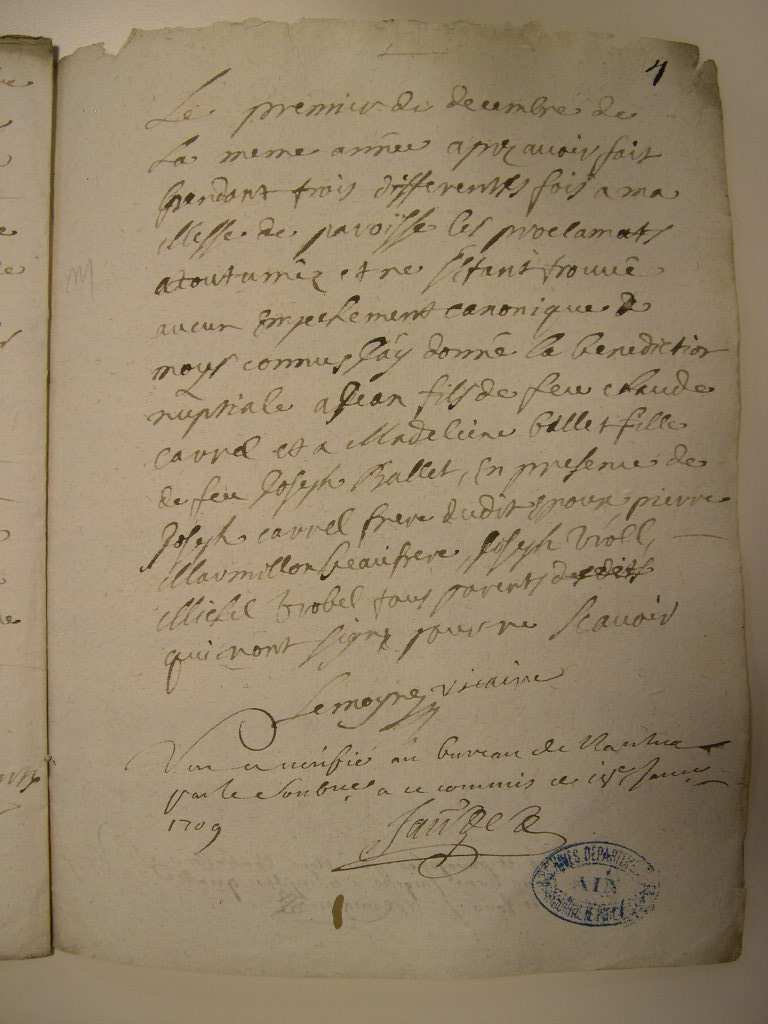 4
Le premier de decembre de
La meme année aprez avoir fait
pendant trois differentes fois a ma
Messe de paroisse les proclamats
acoutumêz et ne S'etant trouvé
aucun Empechement canonique De
nous connus J'ay donné la benediction
nuptiale a Jean fils de feu claude
carrel et a Madeleine ballet fille
de feu Joseph Ballet, En presence de
Joseph carrel frere dudit Epoux, pierre
Marmillon beaufrere, Joseph Violl,
Michel brobel tous parents desdits
qui n'ont signé pour ne Scavoir
Lemoyne vicaire
Vu et vérifié au bureau de Nantua
par le Soubné a ce commis ce
1709
ARCHIVES DEPARTEMENTALES
AIN